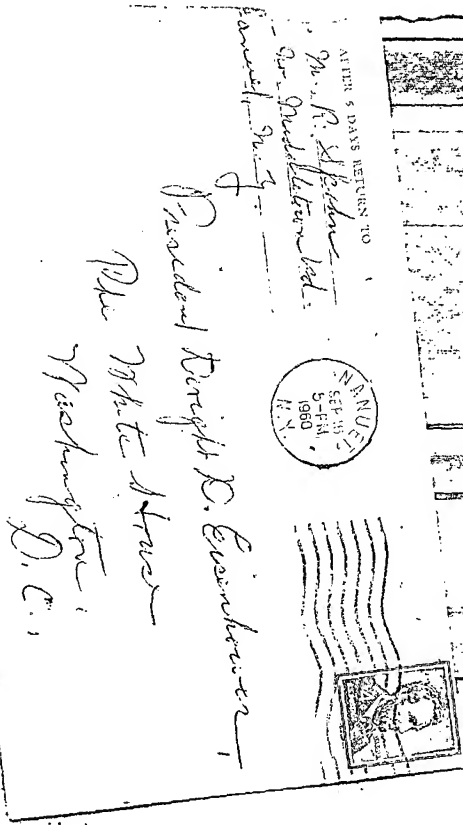 AFTER 5 DAYS RETURN TO
Mrs. R. Spahn
Middletown Rd.
Nanuet, N.Y.
NANUET
SEP
5-PM
1960
N.Y.
President Dwight D. Eisenhower,
The White House
Washington,
D.C.,